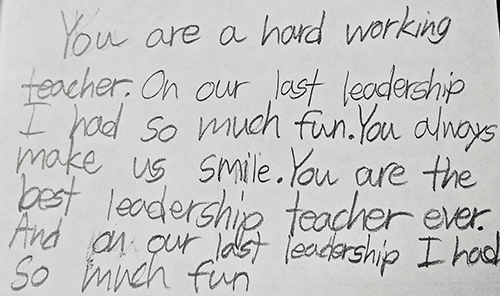 You are a hard working
teacher. On our last leadership
I had so much fun. You always
make us smile. You are the
best leadership teacher ever.
And on our last leadership I had
So much fun